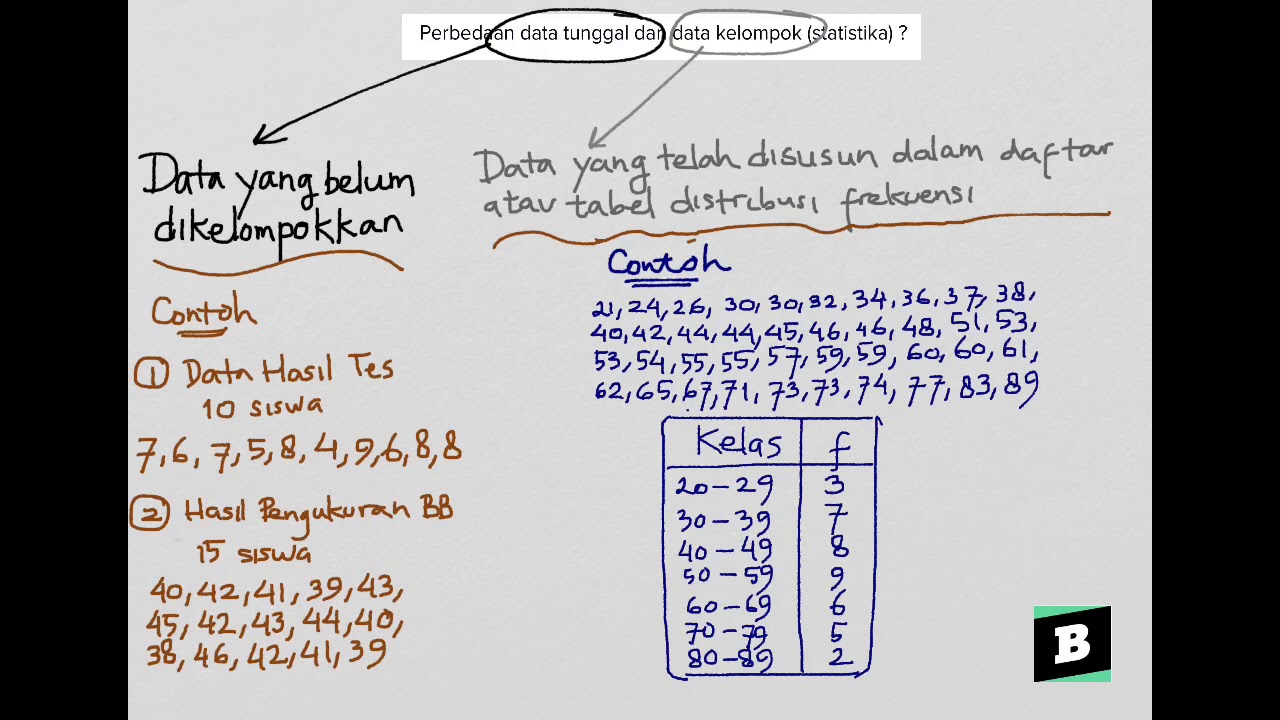 Perbedaan data tunggal dan data kelompok (statistika) ?
Data yang belum
dikelompokkan
Contoh
1 Data Hasil Tes
10 siswa
7, 6, 7, 5, 8, 4, 9, 6, 8, 8
2 Hasil Pengukuran BB
15 siswa
40, 42, 41, 39, 43,
45, 42, 43, 44, 40,
38, 46, 42, 41, 39
Data yang telah disusun dalam daftar
atau tabel distribusi frekuensi
Contoh
21, 24, 26, 30, 30, 32, 34, 36, 37, 38,
40, 42, 44, 44, 45, 46, 46, 48, 51, 53,
53, 54, 55, 55, 57, 59, 59, 60, 60, 61,
62, 65, 67, 71, 73, 73, 74, 77, 83, 89
Kelas f
20 – 29 3
30 – 39 7
40 – 49 8
50 – 59 9
60 – 69 6
70 – 79 5
80 – 89 2
B